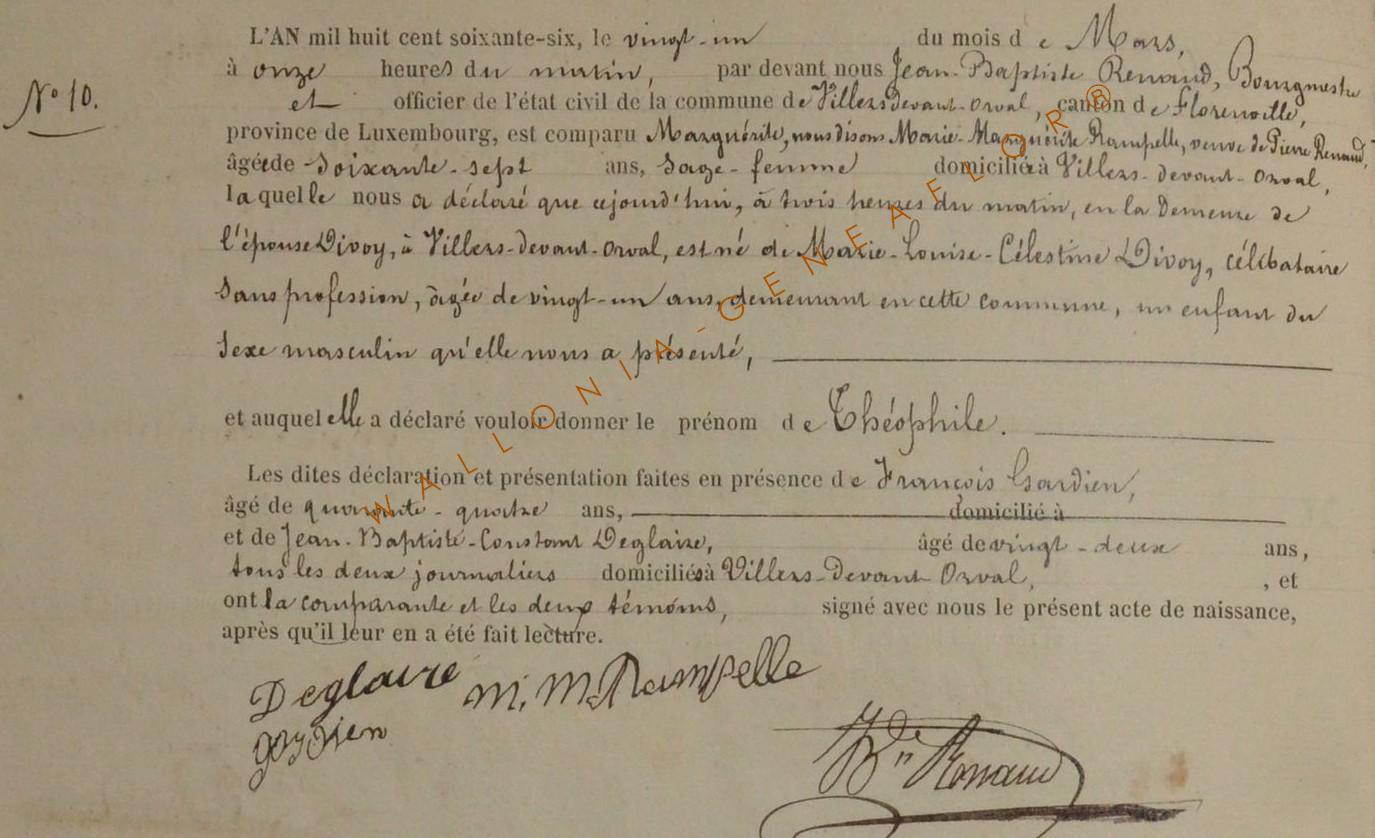 N° 10.
L'AN mil huit cent soixante-six, le vingt-un du mois de Mars,
à onze heures du matin, par devant nous Jean-Baptiste Renaud, Bourgmestre
et officier de l'état civil de la commune de Villers devant-Orval, canton de Florenville,
province de Luxembourg, est comparu Marguérite, nous disons Marie-Marguérite Rampelle, veuve de Pierre Renaud,
âgée de soixante-sept ans, sage-femme domiciliée à Villers-devant-Orval,
laquelle nous a déclaré que cejourd'hui, à trois heures du matin, en la demeure de
l'épouse Divoy, à Villers-devant-Orval, est né de Marie-Louise-Célestine Divoy, célibataire
sans profession, âgée de vingt-un ans, demeurant en cette commune, un enfant du
sexe masculin qu'elle nous a présenté,
et auquel elle a déclaré vouloir donner le prénom de Théophile.
Les dites déclaration et présentation faites en présence de François Gardien,
âgé de quarante-quatre ans, domicilié à
et de Jean-Baptiste-Constant Deglaire, âgé de vingt-deux ans,
tous les deux journaliers domiciliés à Villers-Devant Orval, , et
ont la comparante et les deux témoins, signé avec nous le présent acte de naissance,
après qu'il leur en a été fait lecture.
Deglaire M. M. Rampelle
gardien
Renaud
WALLONIA-GENEAFLOR®